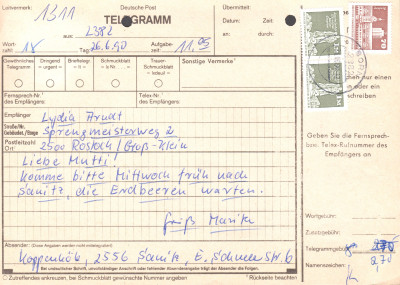 Leitvermerk:
1311
Deutsche Post
TELEGRAMM
Übermittelt:
Datum: Zeit:
an: durch:
aus: L382
Wort-
zahl 18
Tag 26.6.90
Aufgabe-
zeit 11.05
Gewöhnliches
Telegramm
Dringend
= urgent =
Brieftelegr
= lt =
Schmuckblatt
= lx Nr. =
Trauer-
Schmuckblatt
= lxdeuil =
Sonstige Vermerke¹
Fernsprech-Nr.¹
des Empfängers:
Telex-Nr. des
Empfängers:
Empfänger Lydia Arndt
Straße/Nr.
Gebäudeteil/Etage Sprengmeisterweg 2
Postleitzahl
Ort 2500 Rostock/Groß-Klein
Liebe Mutti,
komme bitte Mittwoch früh nach
Sanitz, die Erdbeeren warten.
Gruß Marika
Absender: (Diese Angaben werden nicht mittelegrafiert)
2556 Sanitz
Bei undeutlicher Schrift, unvollständiger Anschrift oder fehlender Absenderangabe trägt der Absender die Folgen.
Zutreffendes ankreuzen, bei Schmuckblatt gewünschte Nummer angeben
¹ Rückseite beachten
nur einen
oder ein
schreiben
Geben Sie die Fernsprech-
bzw. Teilnehmer-Rufnummer des
Empfängers an
Wortgebühr:
Zusatzgebühr:
Telegrammgebühr
Namenszeichen:
2,70